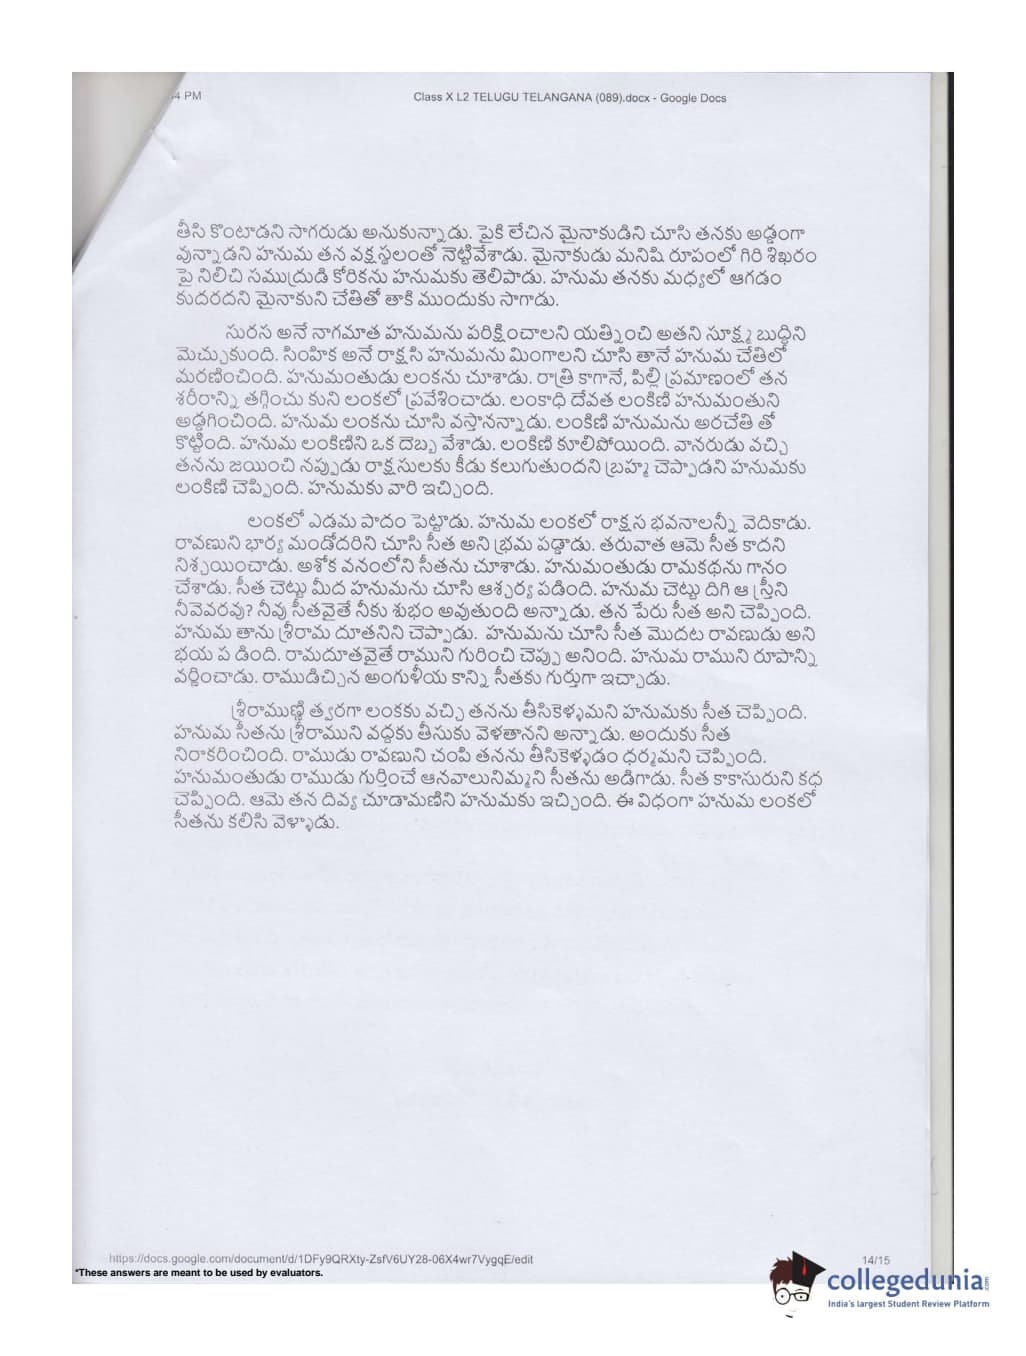 4 PM
Class X L2 TELUGU TELANGANA (089).docx - Google Docs
తీసి కొంటాడని సాగరుడు అనుకున్నాడు. పైకి లేచిన మైనాకుడిని చూసి తనకు అడ్డంగా
వున్నాడని హనుమ తన వక్షస్థలంతో నెట్టివేశాడు. మైనాకుడు మనిషి రూపంలో గిరి శిఖరం
పై నిలిచి సముద్రుడి కోరికను హనుమకు తెలిపాడు. హనుమ తనకు మధ్యలో ఆగడం
కుదరదని మైనాకుని చేతితో తాకి ముందుకు సాగాడు.
సురస అనే నాగమాత హనుమను పరిక్షించాలని యత్నించి అతని సూక్ష్మ బుద్ధిని
మెచ్చుకుంది. సింహిక అనే రాక్షసి హనుమను మింగాలని చూసి తానే హనుమ చేతిలో
మరణించింది. హనుమంతుడు లంకను చూశాడు. రాత్రి కాగానే, పిల్లి ప్రమాణంలో తన
శరీరాన్ని తగ్గించు కుని లంకలో ప్రవేశించాడు. లంకాధి దేవత లంకిణి హనుమంతుని
అడ్డగించింది. హనుమ లంకను చూసి వస్తానన్నాడు. లంకిణి హనుమను అరచేతి తో
కొట్టింది. హనుమ లంకిణిని ఒక దెబ్బ వేశాడు. లంకిణి కూలిపోయింది. వానరుడు వచ్చి
తనను జయించి నప్పుడు రాక్షసులకు కీడు కలుగుతుందని బ్రహ్మ చెప్పాడని హనుమకు
లంకిణి చెప్పింది. హనుమకు వారి ఇచ్చింది.
లంకలో ఎడమ పాదం పెట్టాడు. హనుమ లంకలో రాక్షస భవనాలన్నీ వెదికాడు.
రావణుని భార్య మండోదరిని చూసి సీత అని భ్రమ పడ్డాడు. తరువాత ఆమె సీత కాదని
నిశ్చయించాడు. అశోక వనంలోని సీతను చూశాడు. హనుమంతుడు రామకథను గానం
చేశాడు. సీత చెట్టు మీద హనుమను చూసి ఆశ్చర్య పడింది. హనుమ చెట్టు దిగి ఆ స్త్రీని
నీవెవరవు? నీవు సీతవైతే నీకు శుభం అవుతుంది అన్నాడు. తన పేరు సీత అని చెప్పింది.
హనుమ తాను శ్రీరామ దూతనిని చెప్పాడు. హనుమను చూసి సీత మొదట రావణుడు అని
భయ ప డింది. రామదూతవైతే రాముని గురించి చెప్పు అనింది. హనుమ రాముని రూపాన్ని
వర్ణించాడు. రాముడిచ్చిన అంగుళీయ కాన్ని సీతకు గుర్తుగా ఇచ్చాడు.
శ్రీరాముణ్ణి త్వరగా లంకకు వచ్చి తనను తీసికెళ్ళమని హనుమకు సీత చెప్పింది.
హనుమ సీతను శ్రీరాముని వద్దకు తీసుకు వెళతానని అన్నాడు. అందుకు సీత
నిరాకరించింది. రాముడు రావణుని చంపి తనను తీసికెళ్ళడం ధర్మమని చెప్పింది.
హనుమంతుడు రాముడు గుర్తించే ఆనవాలునిమ్మని సీతను అడిగాడు. సీత కాకాసురుని కధ
చెప్పింది. ఆమె తన దివ్య చూడామణిని హనుమకు ఇచ్చింది. ఈ విధంగా హనుమ లంకలో
సీతను కలిసి వెళ్ళాడు.
https://docs.google.com/document/d/1DFy9QRXty-ZsfV6UY28-06X4wr7VygqE/edit
14/15
*These answers are meant to be used by evaluators.
collegedunia.com
India's largest Student Review Platform